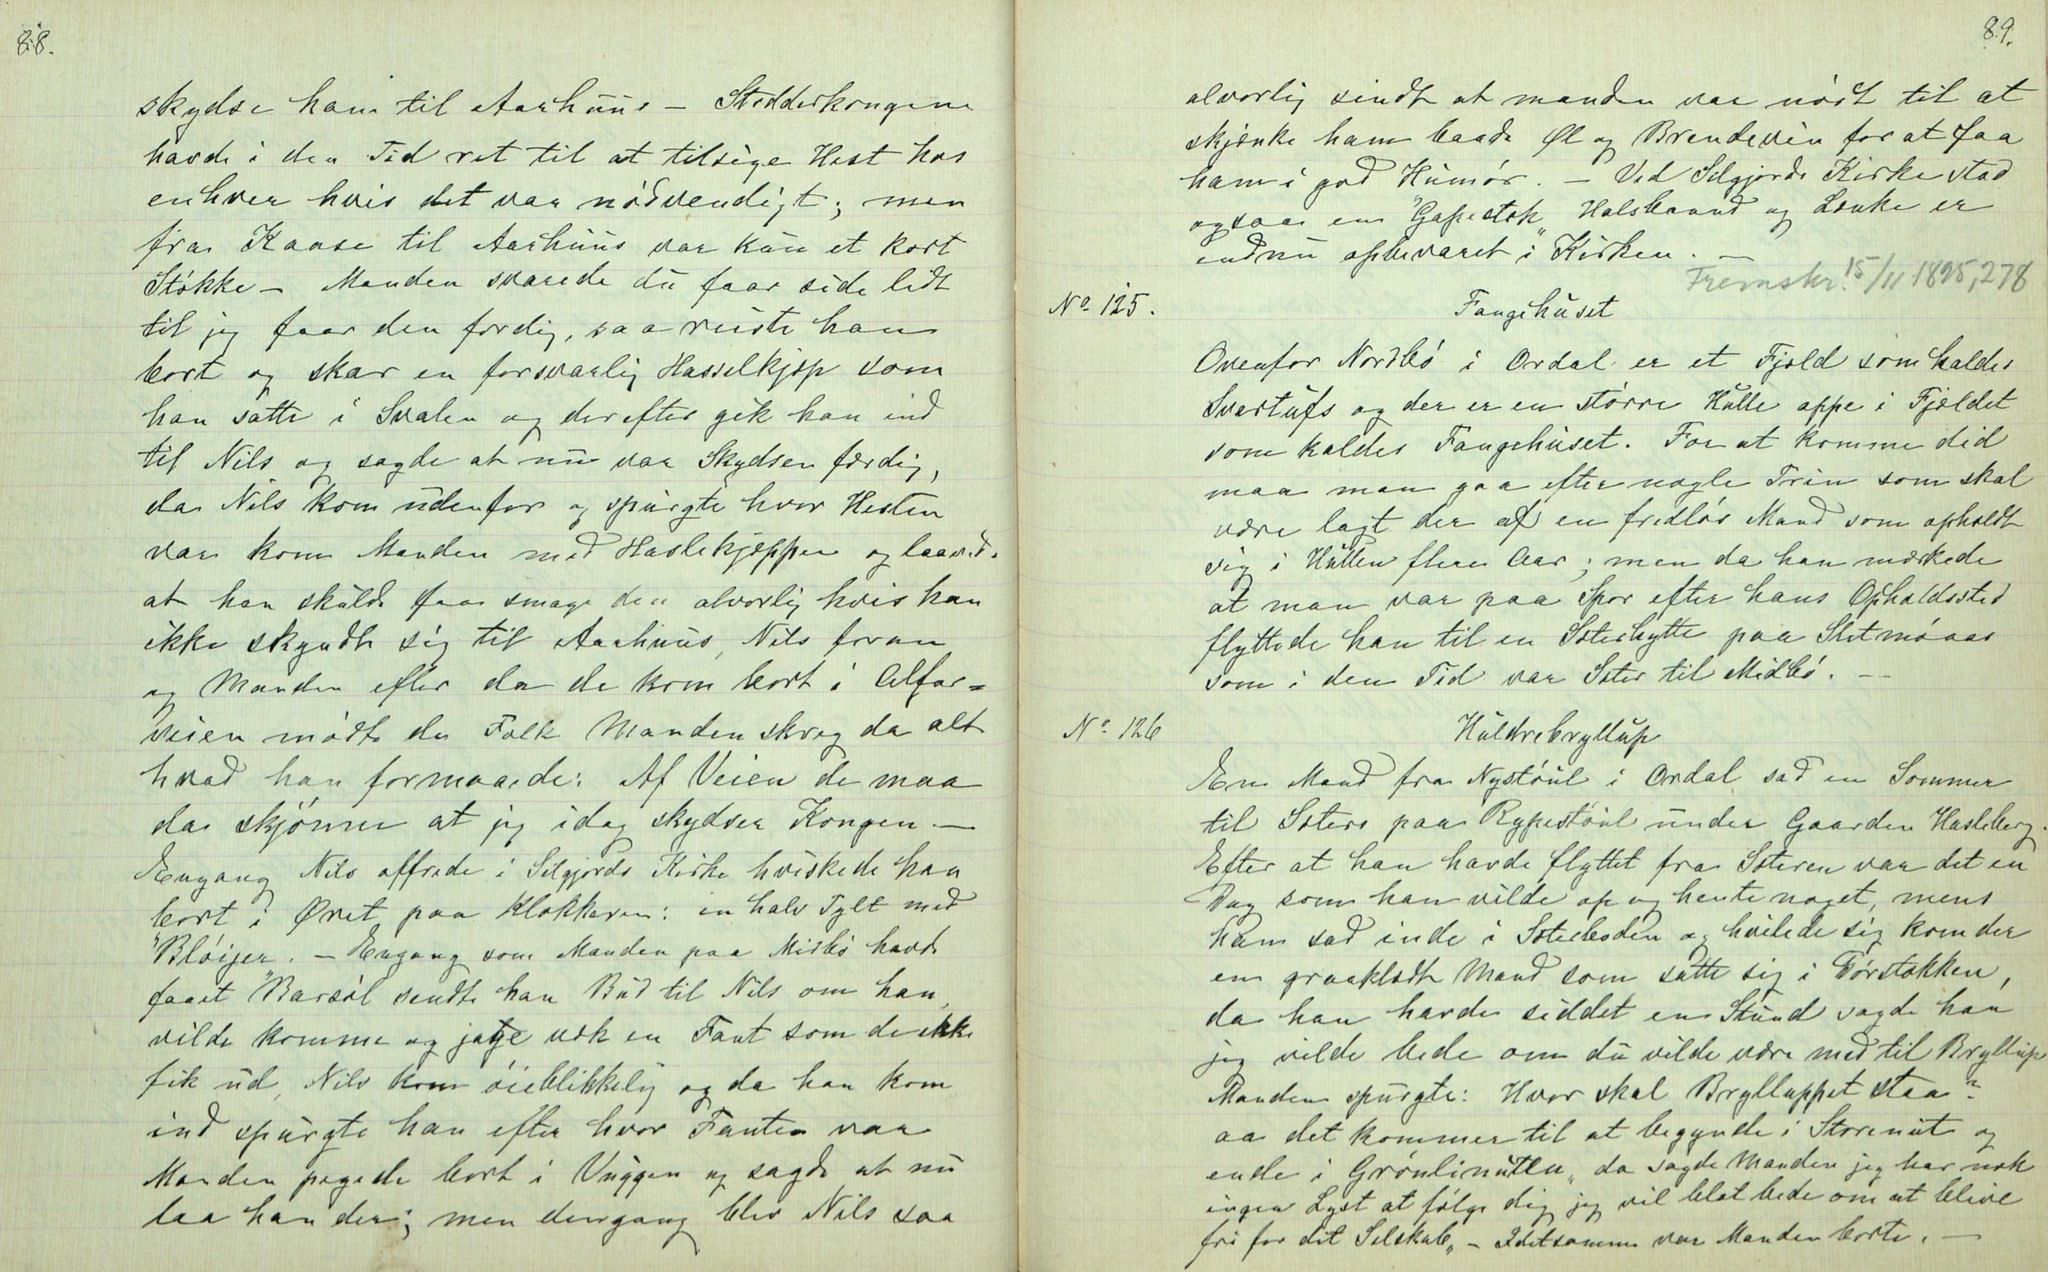 88.
skydse ham til Aarhuus - Stodderkongene
havde i den Tid ret til at tilsige Hest hos
enhver hvis det var nødvendigt; men
fra Kaase til Aarhuus var kun et kort
Støkke - Manden svarede du faar side lidt
til jeg faar den færdig, saa reiste han
bort og skar en forsvarlig Hasselkjæp som
han satte i Svalen og derefter gik han ind
til Nils og sagde at nu var Skydsen færdig,
da Nils kom udenfor og spurgte hvor Hesten
var kom Manden med Haslekjæppen og laaved
at han skulde faa smage den alvorlig hvis han
ikke skyndte sig til Aarhuus, Nils foran
og Manden efter da de kom bort i Alfar=
veien mødte de Folk Manden skreg da alt
hvad han formaaede: Af Veien de maa
da skjønne at jeg idag skydser Kongen -
Engang Nils offrede i Selgjords Kirke hviskede han
bort i Øret paa Klokkeren: en halv Tylt med
"Bløijer. - Engang som Manden paa Midbø havde
faaet "Barsøl sendte han Bud til Nils om han
vilde komme og jage væk en Fant som de ikke
fik ud, Nils kom øieblikkelig og da han kom
ind spurgte han efter hvor Fanten var
Manden pegede bort i Vuggen og sagde at nu
laa han der; men dengang blev Nils saa
89.
alvorlig sindt at manden var nødt til at
skjænke ham baade Øl og Brendevin for at faa
ham i god Humør. - Ved Selgjords Kirke stod
ogsaa en "Gapestok" Halsbaand og Lænke er
endnu opbevaret i Kirken. -
Fremskr. 15/11 1895, 278
No 125.
Fangehuset
Ovenfor Nordbø i Ordal er et Fjeld som kaldes
Svartufs og der er en større Hulle oppe i Fjeldet
som kaldes Fangehuset. For at komme did
maa man gaa efter nogle Trin som skal
være lagt der af en fredløs Mand som opholdt
sig i Hullen flere Aar; men da han mærkede
at man var paa Spor efter hans Opholdssted
flyttede han til en Sæterhytte paa Sletmøaas
som i den Tid var Sæter til Midbø. -
No 126
Huldrebryllup
En Mand fra Nystøul i Ordal sad en Sommer
til Sæters paa Rypestøul under Gaarden Hasleberg.
Efter at han havde flyttet fra Sæteren var det en
Dag som han vilde op og hente noget, mens
han sad inde i Sæterboden og hvilede sig kom der
en graaklædt Mand som satte sig i Dørstokken,
da han havde siddet en Stund sagde han
jeg vilde bede om du vilde være med til Bryllup
Manden spurgte: Hvor skal Brylluppet staa?
aa det kommer til at begynde i Storenut og
ende i Grønlinutten" da sagde Manden jeg har nok
ingen Lyst at følge dig jeg vil blot bede om at blive
fri for dit Selskab" - Idetsamme var Manden borte. -